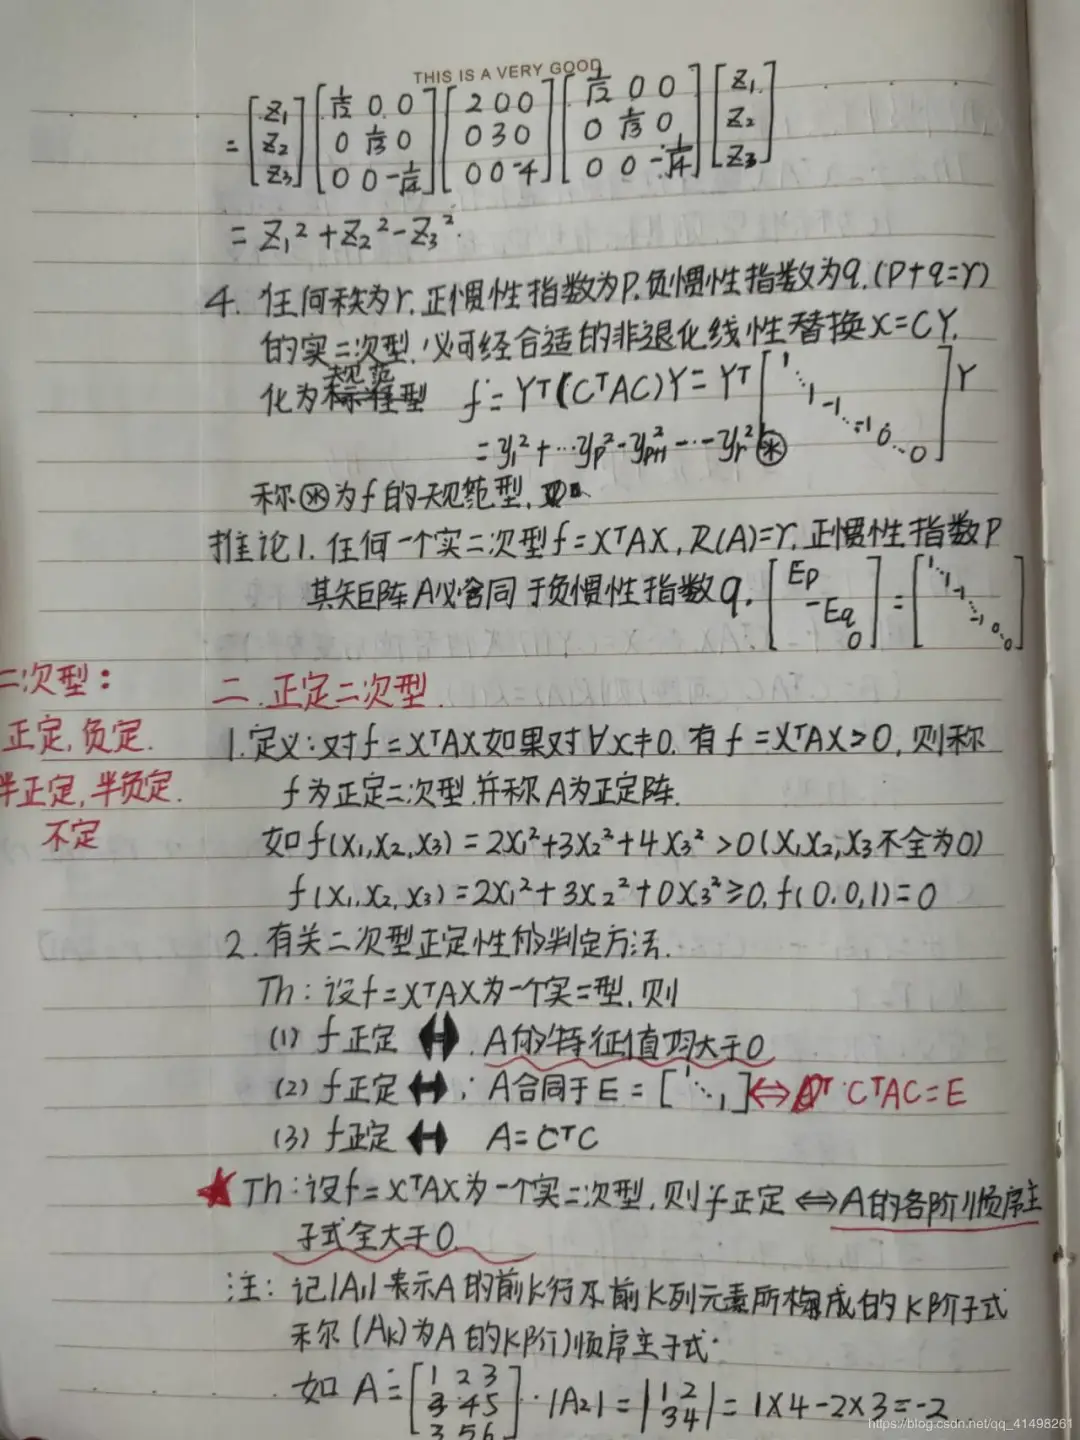 THIS IS A VERY GOOD
= [z₁ z₂ z₃] [1/√2 0 0 0 1/√3 0 0 0 -1/√4] [2 0 0 0 3 0 0 0 -4] [1/√2 0 0 0 1/√3 0 0 0 -1/√4] [z₁ z₂ z₃]
= z₁² + z₂² - z₃².
4. 任何秩为r,正惯性指数为P,负惯性指数为q.(P+q=r)
的实二次型,必可经合适的非退化线性替换X=CY,
化为规范型 f = Yᵀ(CᵀAC)Y = Yᵀ[1 ⋱ 1 -1 ⋱ -1 0 ⋱ 0]Y
= y₁² + ⋯ yp² - yp+1² - ⋯ - yr² ⊛
称⊛为f的规范型,
推论1. 任何一个实二次型f=XᵀAX, R(A)=r, 正惯性指数P
其矩阵A必合同于负惯性指数q. [Ep -Eq 0] = [1 ⋱ 1 -1 ⋱ -1 0 ⋱ 0]
二次型:
正定,负定.
半正定,半负定.
不定
二.正定二次型.
1.定义:对f=XᵀAX如果对∀x≠0,有f=XᵀAX>0,则称
f为正定二次型,并称A为正定阵.
如f(x₁,x₂,x₃) = 2x₁²+3x₂²+4x₃² >0(x₁,x₂,x₃不全为0)
f(x₁,x₂,x₃)=2x₁²+3x₂²+0x₃²≥0,f(0,0,1)=0
2.有关二次型正定性的判定方法.
Th:设f=XᵀAX为一个实二型,则
(1) f正定 ⟺ A的特征值均大于0
(2) f正定 ⟺: A合同于E=[1 ⋱ 1] ⟺ CᵀAC=E
(3) f正定 ⟺ A=CᵀC
★Th:设f=XᵀAX为一个实二次型,则f正定 ⟺ A的各阶顺序主
子式全大于0.
注:记|A₁|表示A的前k行及前K列元素所构成的K阶子式
称(Aₖ)为A的K阶顺序主子式.
如A=[1 2 3 3 4 5 3 5 6]. |A₂|=|1 2 3 4|=1×4-2×3=-2
https://blog.csdn.net/qq_41498261